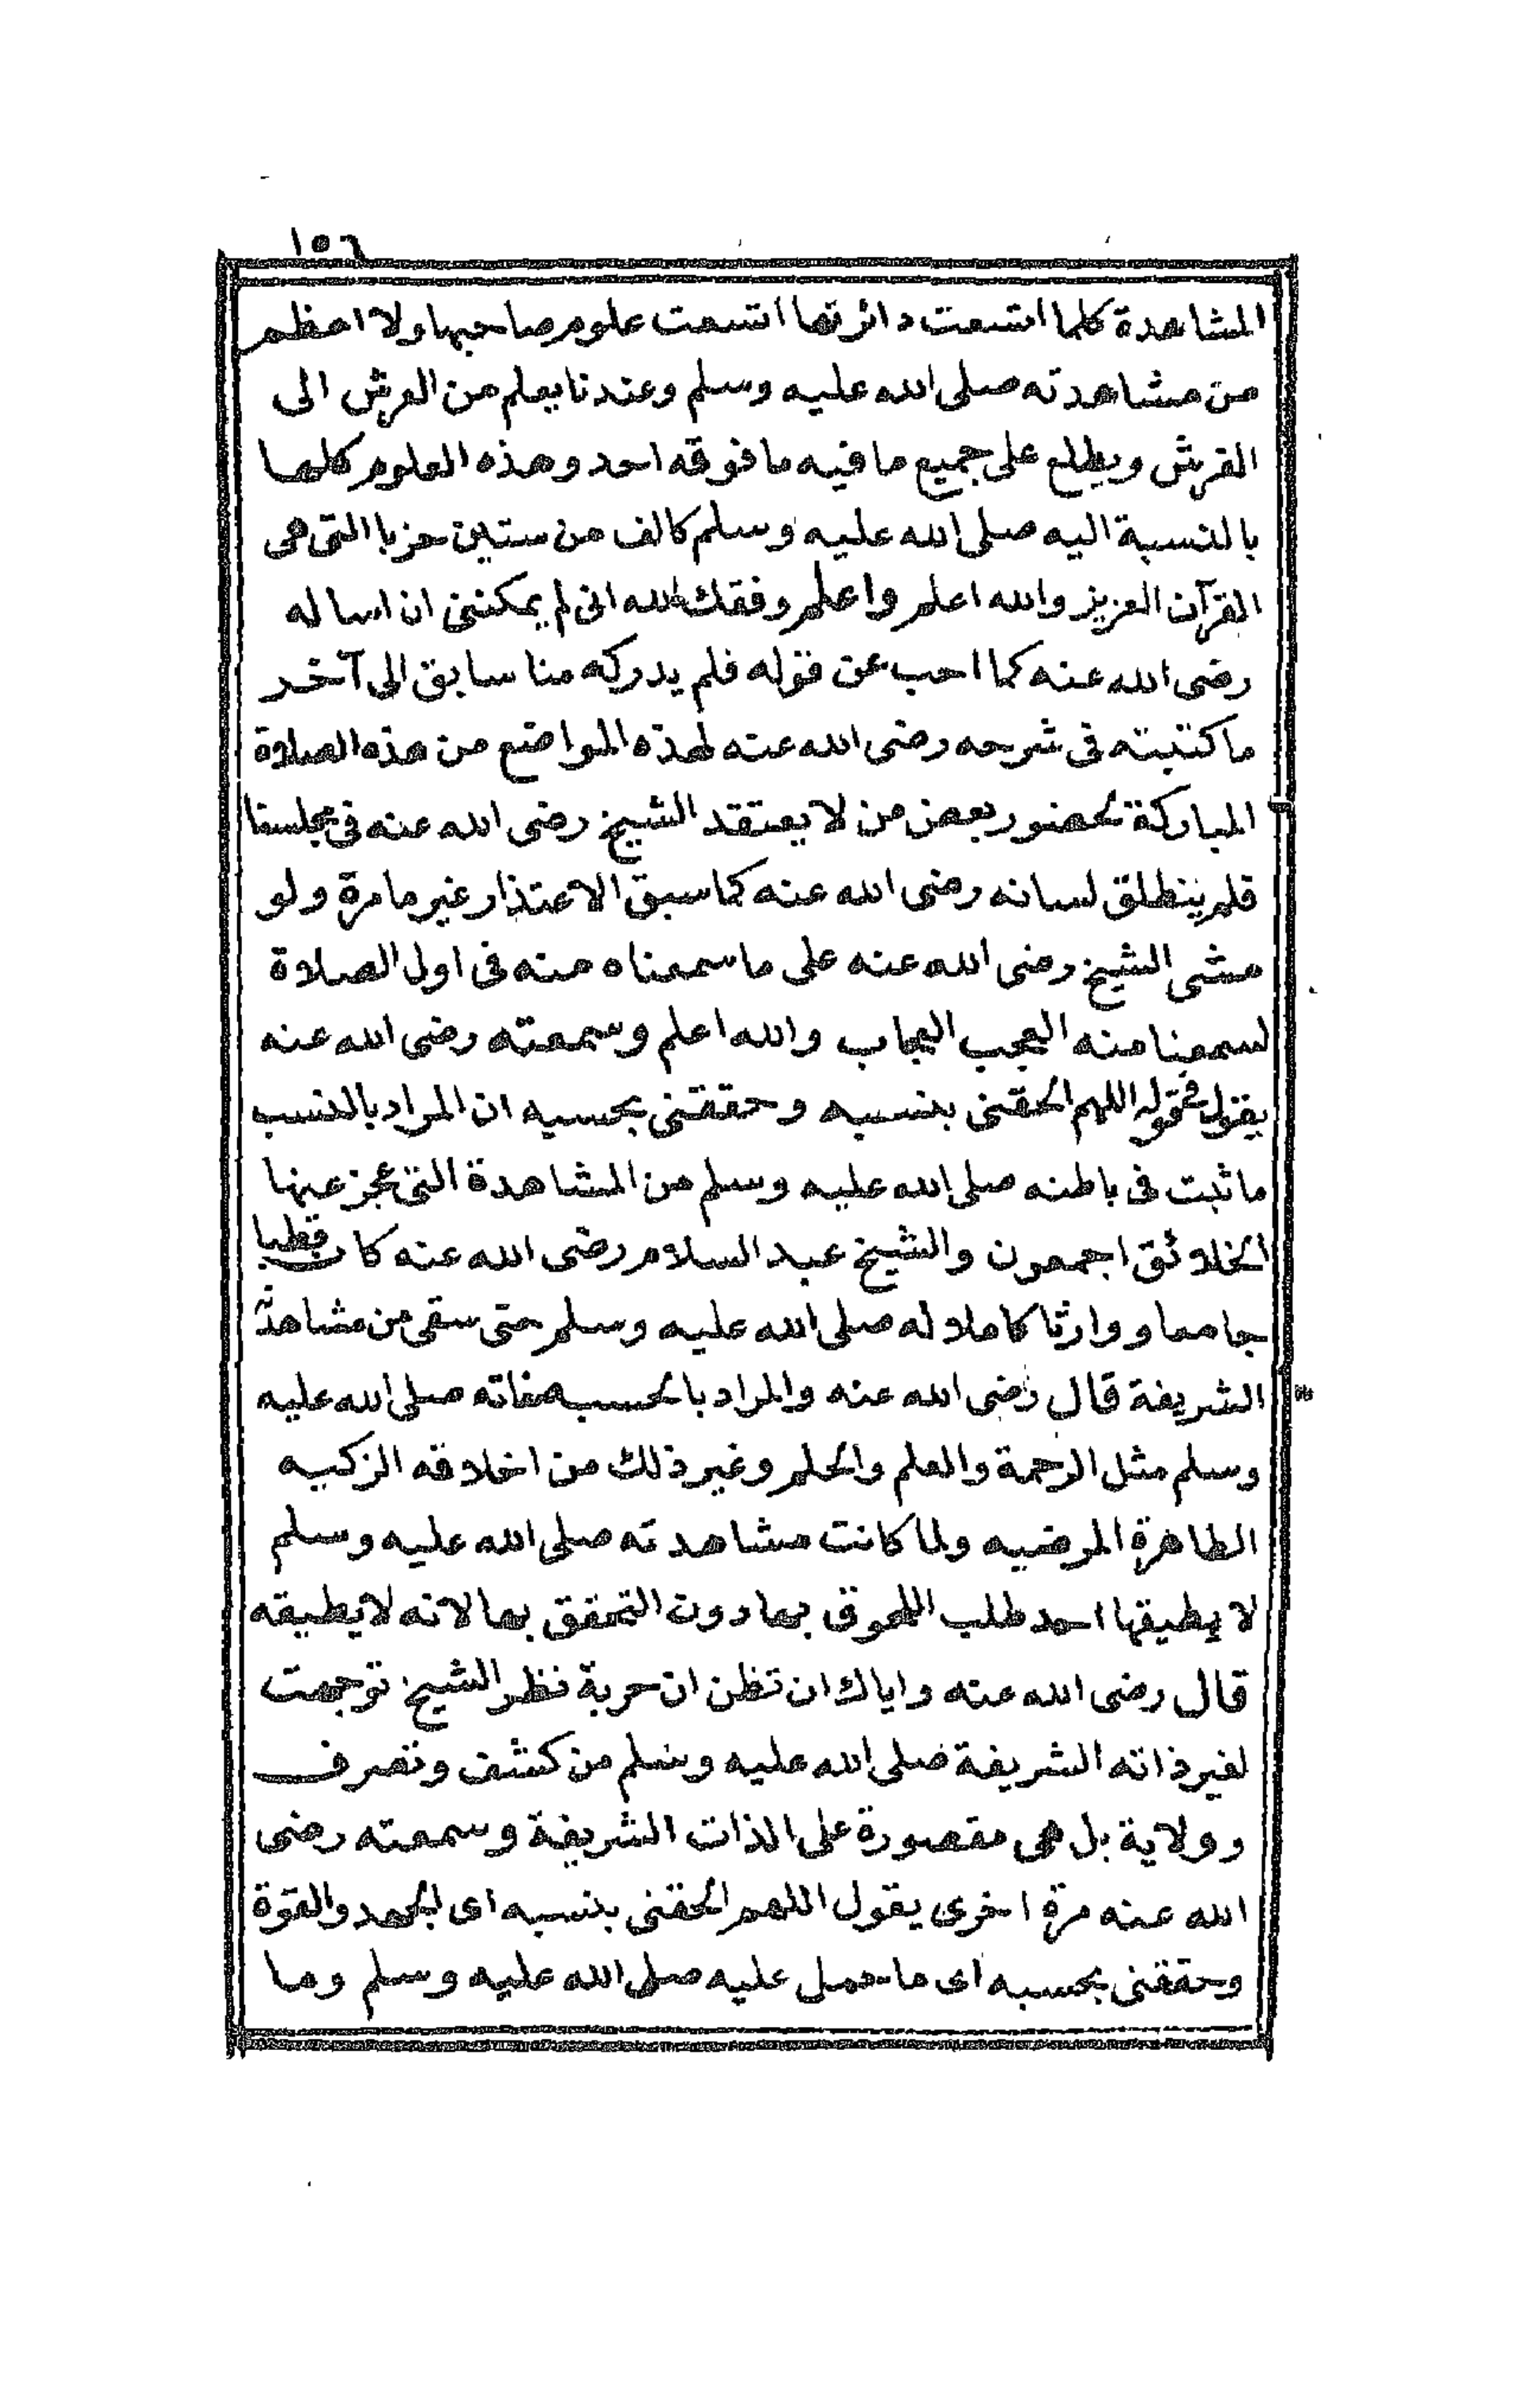 ١٥٦
المشاهدة كلما اتسعت دائرتها اتسعت علوم صاحبها ولا اعظم
من مشاهدته صلى الله عليه وسلم وعندنا يعلم من العرش الى
الفرش ويطلع على جميع ما فيه ما فوقه احد وهذه العلوم كلها
بالنسبة اليه صلى الله عليه وسلم كالف من ستين حزبا التى هى
القرآن العزيز والله اعلم واعلم وفقك الله انى لم يمكننى ان اساله
رضى الله عنه كما احب عن قوله فلم يدركه منا سابق الى آخر
ما كتبته فى شرحه رضى الله عنه لهذه المواضع من هذه الصلاة
المباركة لحضور بعض من لا يعتقد الشيخ رضى الله عنه فى مجلسنا
فلم ينطلق لسانه رضى الله عنه كما سبق الاعتذار غير ما مرة ولو
مشى الشيخ رضى الله عنه على ما سمعناه منه فى اول الصلاة
لسمعنا منه العجب العجاب والله اعلم وسمعته رضى الله عنه
يقول فى قوله اللهم الحقنى بنسبه وحققنى بحسبه ان المراد بالنسب
ما ثبت فى باطنه صلى الله عليه وسلم من المشاهدة التى عجز عنها
الخلائق اجمعون والشيخ عبد السلام رضى الله عنه كان قطبا
جامعا ووارثا كاملا له صلى الله عليه وسلم حتى سقى من مشاهدته
الشريفة قال رضى الله عنه والمراد بالحسب صفاته صلى الله عليه
وسلم مثل الرحمة والعلم والحلم وغير ذلك من اخلاقه الزكيه
الطاهرة المرضيه ولما كانت مشاهدته صلى الله عليه وسلم
لا يطيقها احد طلب اللحوق بها دون التحقق بها لانه لا يطيقه
قال رضى الله عنه واياك ان تظن ان حربة نظر الشيخ توجهت
لغير ذاته الشريفة صلى الله عليه وسلم من كشف وتصرف
وولاية بل هى مقصورة على الذات الشريفة وسمعته رضى
الله عنه مرة اخرى يقول اللهم الحقنى بنسبه اى الجهد والقوة
وحققنى بحسبه اى ما حمل عليه صلى الله عليه وسلم وما